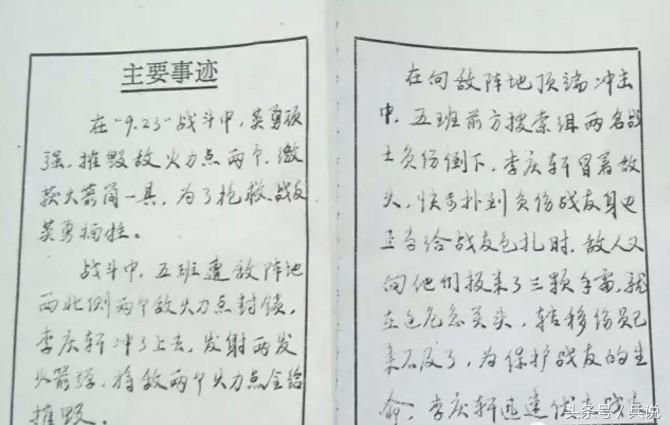 主要事迹
在"9.23"战斗中,英勇顽
强,摧毁敌火力点两个,缴
获火箭筒一具,为了抢救战友
英勇牺牲。
战斗中,五班遭敌阵地
西北侧两个敌火力点封锁,
李庆轩冲了上去,发射两发
火箭弹,将敌两个火力点全给
摧毁。
在向敌阵地顶端冲击
中,五班前方搜索组两名战
士负伤倒下,李庆轩冒着敌
火,快步扑到负伤战友身边
正当给战友包扎时,敌人又
向他们投来了三颗手雷,就
在这危急关头,转移伤员已
来不及了,为保护战友的生
命,李庆轩迅速伏在战友
头条号/兵说